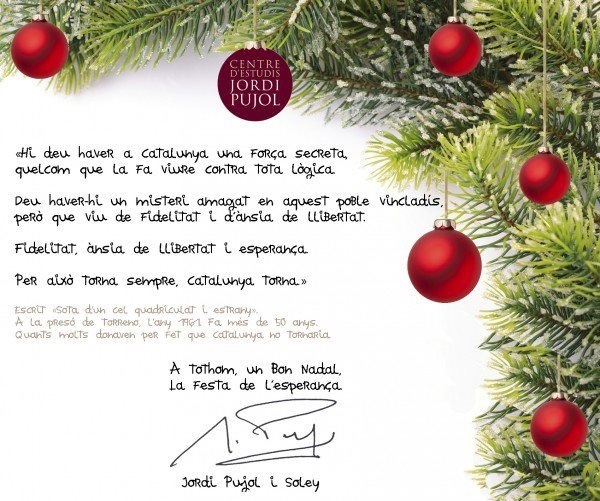 CENTRE
D'ESTUDIS
JORDI
PUJOL
«Hi deu haver a Catalunya una força secreta,
quelcom que la fa viure contra tota lògica.
Deu haver-hi un misteri amagat en aquest poble vincladís,
però que viu de fidelitat i d'ànsia de llibertat.
Fidelitat, ànsia de llibertat i esperança.
Per això torna sempre, Catalunya torna.»
Escrit «Sota d'un cel quadriculat i estrany».
A la presó de Torrero, l'any 1961. Fa més de 50 anys.
Quants molts donaven per fet que Catalunya no tornaria.
A tothom, un Bon Nadal,
la festa de l'esperança.
Jordi Pujol i Soley